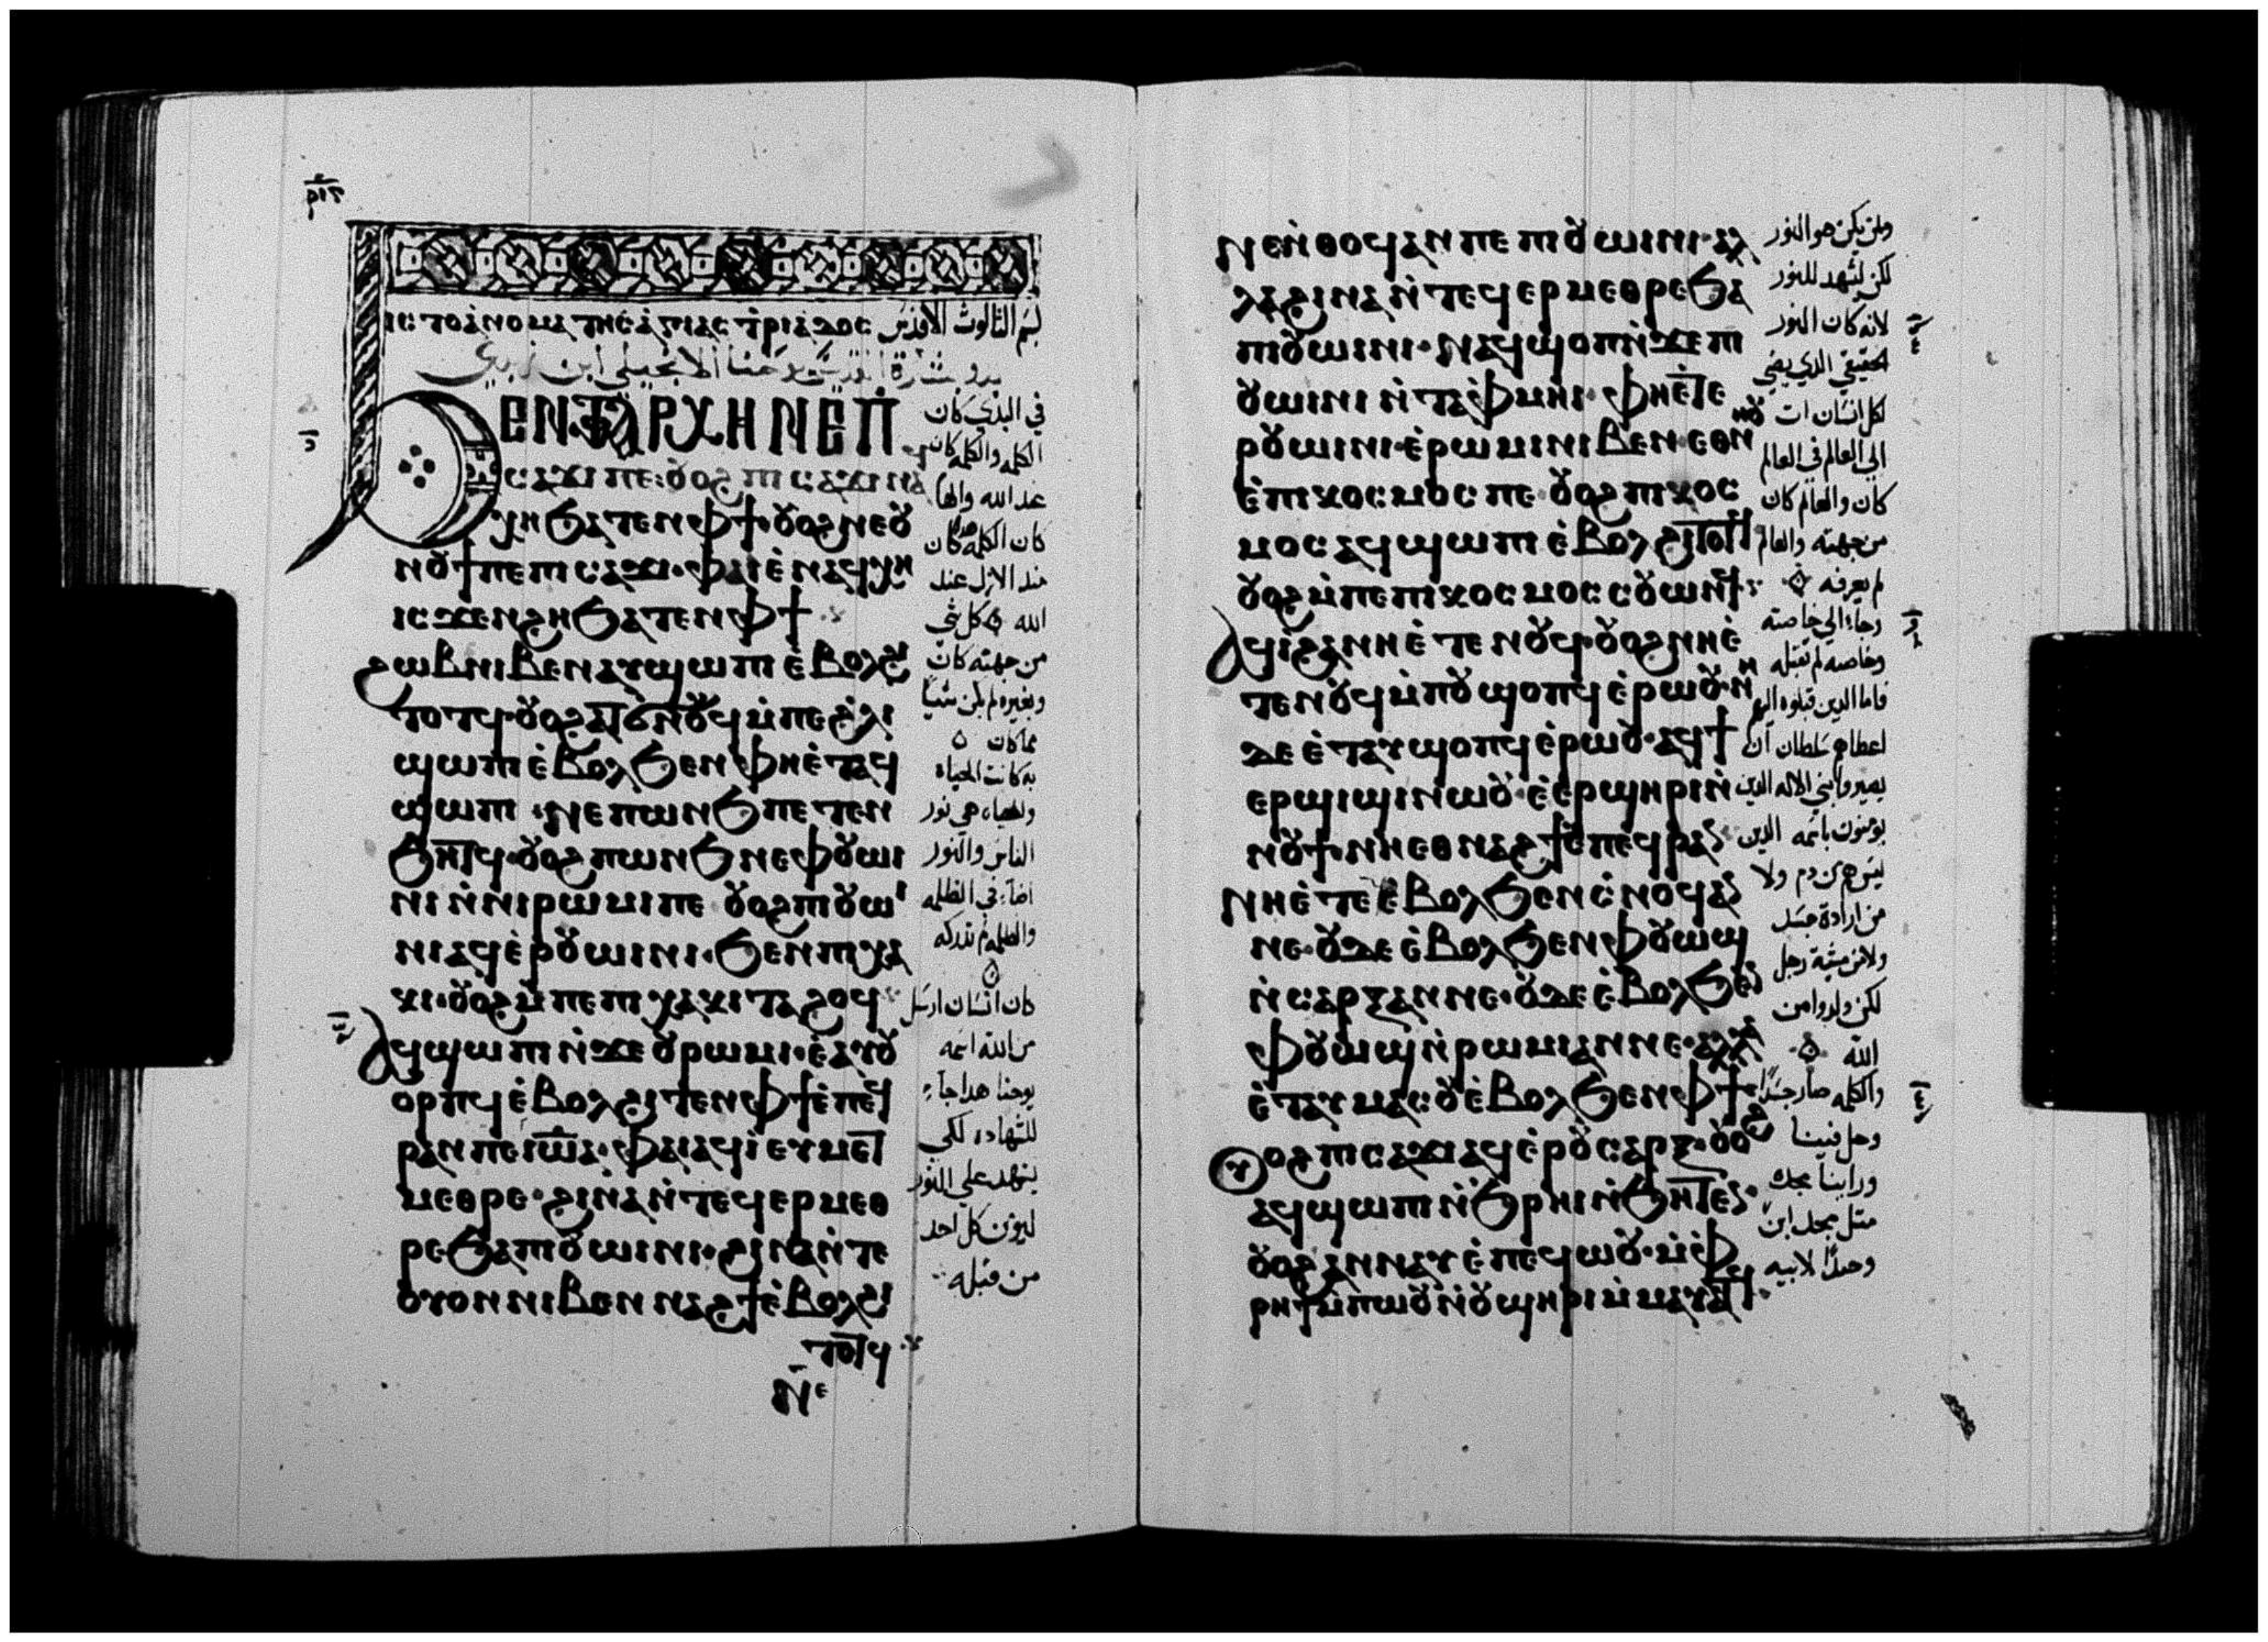 ⲓⲥ ⲧⲟ ⲁ̀ⲛⲟⲙⲁ ⲧⲏⲥ ⲁ̀ⲅⲓⲁⲥ ⲧ̀ⲣⲓⲁⲇⲟⲥ بسم الثالوث الاقدس
ϦⲈⲚ ϮⲀⲢⲬⲎ ⲚⲈ Ⲡ̀
ⲥⲁϫⲓ ⲡⲉ: ⲟⲩⲟϩ ⲡⲓⲥⲁϫⲓ ⲛⲁϥ
ⲭⲏ ϧⲁⲧⲉⲛ ⲫϯ· ⲟⲩⲟϩ ⲛⲉ ⲟⲩ
ⲛⲟⲩϯ ⲡⲉ ⲡⲓⲥⲁϫⲓ· ⲫⲁⲓ ⲉ̀ⲛⲁϥⲭⲏ
ⲓⲥϫⲉⲛ ϩⲏ ϧⲁⲧⲉⲛ ⲫϯ
ϩⲱⲃ ⲛⲓⲃⲉⲛ ⲁⲩϣⲱⲡⲓ ⲉ̀ⲃⲟⲗ ϩⲓ
ⲧⲟⲧϥ· ⲟⲩⲟϩ ⲁⲧϭⲛⲟⲩϥ ⲙ̀ⲡⲉ ϩ̀ⲗⲓ
ϣⲱⲡⲓ ⲉ̀ⲃⲟⲗ ϧⲉⲛ ⲫⲏⲉ̀ⲧⲁϥ
ϣⲱⲡⲓ· ⲛⲉ ⲡⲱⲛϧ ⲡⲉ ⲧⲉⲛ
ϧⲏⲧϥ· ⲟⲩⲟϩ ⲡⲱⲛϧ ⲛⲉ ⲫⲟⲩⲱⲓ
ⲛⲓ ⲛ̀ⲛⲓⲣⲱⲙⲓ ⲡⲉ ⲟⲩⲟϩ ⲡⲓⲟⲩⲱⲓ
ⲛⲓ ⲁϥⲉ̀ⲣⲟⲩⲱⲓⲛⲓ· ϧⲉⲛ ⲡⲓⲭⲁ
ⲕⲓ· ⲟⲩⲟϩ ⲙ̀ⲡⲉ ⲡⲓⲭⲁⲕⲓ ⲧⲁϩⲟϥ
ⲁϥϣⲱⲡⲓ ⲛ̀ϫⲉ ⲟⲩⲣⲱⲙⲓ· ⲉ̀ⲁⲩⲟⲩ
ⲟⲣⲡϥ ⲉ̀ⲃⲟⲗ ϩⲓⲧⲉⲛ ⲫϯ ⲉ̀ⲡⲉϥ
ⲣⲁⲛ ⲡⲉ ⲓⲱ̅ⲁ̅· ⲫⲁⲓ ⲁϥⲓ̀ ⲉⲩⲙⲉⲧ
ⲙⲉⲑⲣⲉ· ϩⲓⲛⲁ ⲛ̀ⲧⲉϥⲉⲣⲙⲉⲑ
ⲣⲉ ϧⲁ ⲡⲓⲟⲩⲱⲓⲛⲓ· ϩⲓⲛⲁ ⲛ̀ⲧⲉ
ⲟⲩⲟⲛ ⲛⲓⲃⲉⲛ ⲛⲁϩϯ ⲉ̀ⲃⲟⲗ ϩⲓ
ⲧⲟⲧϥ
ⲛ̀ⲉ
في البدي كان
الكلمه والكلمه كان
عند الله والها
كان الكلمه هدا كان
مند الازل عند
الله كل شي
من جهته كان
وبغيره لم يكن شيا
مما كان
به كانت الحياه
والحياه هي نور
الناس والنور
اضاء في الظلمه
والظلمه لم تدركه
كان انسان ارسل
من الله اسمه
يوحنا هدا جاء
للشهاده لكي
يشهد علي النور
ليومن كل احد
من قبله
ⲛⲉ ⲛ̀ⲑⲟϥ ⲁⲛ ⲡⲉ ⲡⲓⲟⲩⲱⲓⲛⲓ· ⲁⲗ
ⲗⲁ ϩⲓⲛⲁ ⲛ̀ⲧⲉϥⲉⲣⲙⲉⲑⲣⲉ ϧⲁ
ⲡⲓⲟⲩⲱⲓⲛⲓ· ⲛⲁϥϣⲟⲡ ⲛ̀ϫⲉ ⲡⲓ
ⲟⲩⲱⲓⲛⲓ ⲛ̀ⲧⲁⲫⲙⲏⲓ· ⲫⲏⲉ̀ⲧⲉ
ⲣⲟⲩⲱⲓⲛⲓ· ⲉ̀ⲣⲱⲙⲓ ⲛⲓⲃⲉⲛ· ⲉⲑⲛⲏⲟⲩ
ⲉ̀ⲡⲓⲕⲟⲥⲙⲟⲥ ⲡⲉ· ⲟⲩⲟϩ ⲡⲓⲕⲟⲥ
ⲙⲟⲥ ⲁϥϣⲱⲡⲓ ⲉ̀ⲃⲟⲗ ϩⲓⲧⲟⲧϥ
ⲟⲩⲟϩ ⲙ̀ⲡⲉ ⲡⲓⲕⲟⲥⲙⲟⲥ ⲥⲟⲩⲱⲛϥ
ⲁϥⲓ̀ ϩⲁ ⲛⲏⲉ̀ⲧⲉ ⲛⲟⲩϥ· ⲟⲩⲟϩ ⲛⲏⲉ̀
ⲧⲉ ⲛⲟⲩϥ ⲙ̀ⲡⲟⲩϣⲟⲡϥ ⲉ̀ⲣⲱⲟⲩ· ⲛⲏ
ⲇⲉ ⲉ̀ⲧⲁⲩϣⲟⲡϥ ⲉ̀ⲣⲱⲟⲩ· ⲁϥϯ
ⲉⲣϣⲓϣⲓ ⲛⲱⲟⲩ· ⲉ̀ⲉⲣϣⲏⲣⲓ ⲛ̀
ⲛⲟⲩϯ· ⲛⲏⲉⲑⲛⲁϩϯ ⲉ̀ⲡⲉϥⲣⲁⲛ
ⲛⲏⲉ̀ⲧⲉ ⲉ̀ⲃⲟⲗ ϧⲉⲛ ⲥ̀ⲛⲟϥ ⲁⲛ
ⲛⲉ· ⲟⲩⲇⲉ ⲉ̀ⲃⲟⲗ ϧⲉⲛ ⲫⲟⲩⲱϣ
ⲛ̀ⲥⲁⲣⲝ ⲁⲛ ⲛⲉ· ⲟⲩⲇⲉ ⲉ̀ⲃⲟⲗ ϧⲉⲛ
ⲫⲟⲩⲱϣ ⲛ̀ⲣⲱⲙⲓ ⲁⲛ ⲛⲉ· ⲁⲗⲗⲁ
ⲉ̀ⲧⲁⲩⲙⲁⲥⲟⲩ ⲉ̀ⲃⲟⲗ ϧⲉⲛ ⲫϯ
ⲟⲩⲟϩ ⲡⲓⲥⲁϫⲓ ⲁϥⲉ̀ⲣⲟⲩⲥⲁⲣⲝ· ⲟⲩⲟϩ
ⲁϥϣⲱⲡⲓ ⲛ̀ϧⲣⲏⲓ ⲛ̀ϧⲏⲧⲉⲛ·
ⲟⲩⲟϩ ⲁⲛⲛⲁⲩ ⲉ̀ⲡⲉϥⲱⲟⲩ· ⲙ̀ⲫ̀
ⲣⲏϯ ⲙ̀ⲡⲱⲟⲩ ⲛ̀ⲟⲩϣⲏⲣⲓ ⲙ̀ⲙⲁⲩⲁⲧϥ
ولم يكن هو النور
لكن ليشهد للنور
لانه كان النور
الحقيقي الدي يضي
لكل انسان ات
الي العالم في العالم
كان والعالم كان
من جهته والعالم
لم يعرفه
وجاء الي خاصته
وخاصته لم تقبله
فاما الدين قبلوه اليهم
اعطاهم سلطان ان
يصيروا بني الاله الدين
يومنون باسمه الدين
ليس هم من دم ولا
من ارادة جسد
ولا من مشية رجل
لكن ولدوا من
الله
والكلمه صار جسدا
وحل فينا
وراينا مجده
متل مجد ابن
وحيدا لابيه